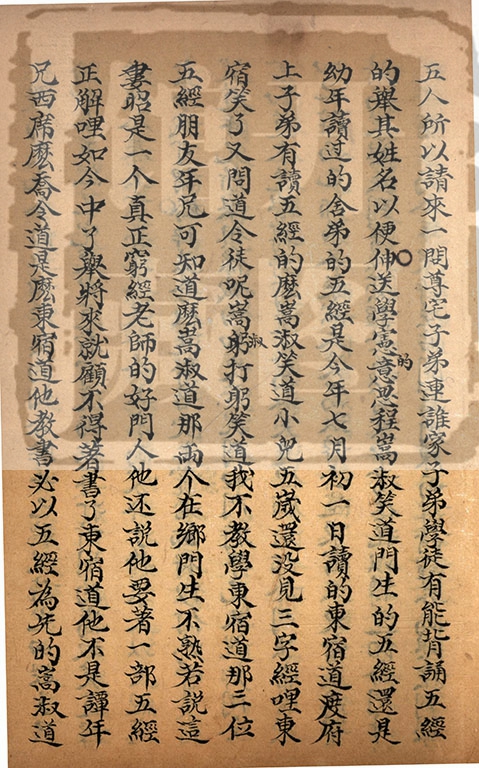 五人所以請來一問尊宅子弟連誰家子弟學徒有能背誦五經
的舉其姓名以便伸送學憲的意思程嵩淑笑道門生的五經還是
幼年讀过的舍弟的五經是今年七月初一日讀的東宿道度府
上子弟有讀五經的麽嵩淑笑道小兒五嵗還没見三字經哩東
宿笑了又問道令徒呢嵩淑躬打躬笑道我不教學東宿道那三位
五經朋友年兄可知道麽嵩淑道那兩个在鄉門生不熟若說這
婁昭是一个真正窮經老師的好門人他还說他要著一部五經
正解哩如今中了舉將來就顧不得著書了東宿道他不是譚年
兄西席麽喬令道是麽東宿道他教書必以五經為先的嵩淑道